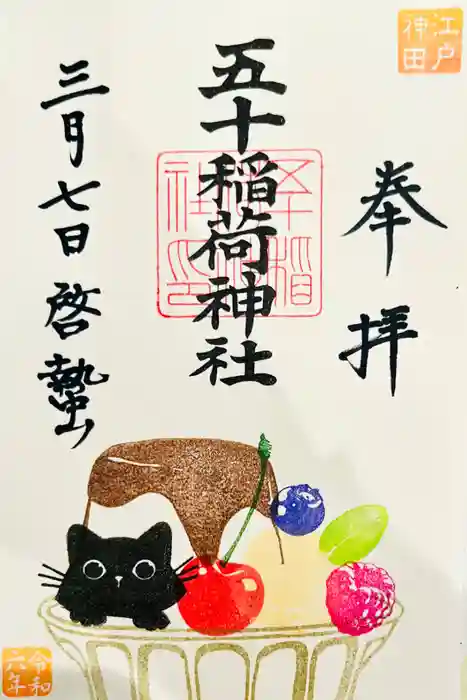 江戸
神田
奉拝
五十稲荷神社
三月七日 啓蟄
令和
六年